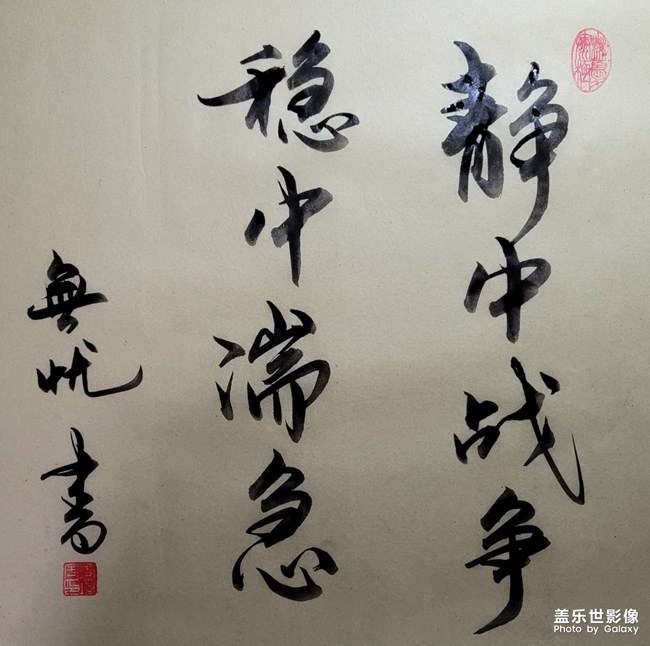 静中战争
稳中湍急
無忧書
盖乐世影像
Photo by Galaxy